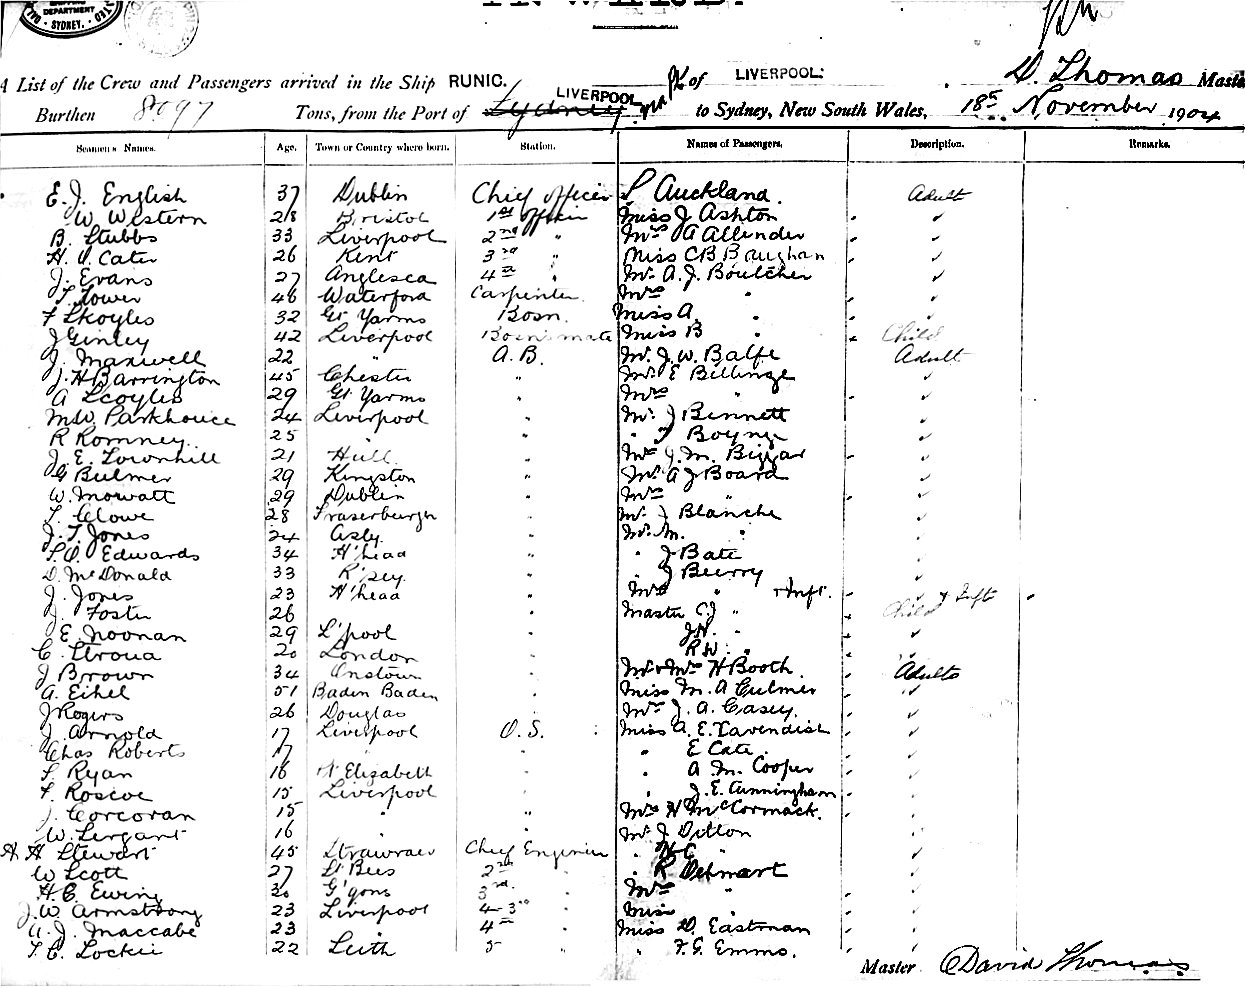 DEPARTMENT
SYDNEY.
A List of the Crew and Passengers arrived in the Ship RUNIC. of LIVERPOOL. D. Thomas Master
Burthen 8097 Tons, from the Port of Sydney LIVERPOOL to Sydney, New South Wales, 18th November 1904
Seamen's Names. Age. Town or Country where born. Station. Names of Passengers. Description. Remarks.
E. J. English 37 Dublin Chief officer Auckland. Adult
W. Western 28 Bristol 1st officer Miss J Ashton
B. Stubbs 33 Liverpool 2nd " Mrs A Allender
H. O. Cater 26 Kent 3rd " Miss C B Baughan
J. Evans 27 Anglesea 4th " Mr. A. J. Boultcher
T. Power 46 Waterford Carpenter Mrs "
F Skoyles 32 Gt Yarms Bosn. Miss A. "
J Ginley 42 Liverpool Bosn's mate Miss B " Child
J. Maxwell 22 " A. B. Mr. J. W. Balfe Adult
J. H Barrington 45 Chester " Mr. E Billinge
A Scoyles 29 Gt Yarms " Mrs "
M. W. Parkhouse 24 Liverpool " Mr. J Bennett
R Romney 25 " " " J Boyne
J. E. Townhill 21 Hull " Mr J. M. Biggar
G Bulmer 29 Kingston " Mr. A J Board
W. Mowatt 29 Dublin " Mrs "
T. Clowe 28 Fraserburgh " Mr. J Blanche
J. T. Jones 24 " Mr. M. "
T. O. Edwards 34 H'head " " J Bate
D. McDonald 33 R'sey " " J Beerry
J. Jones 23 H'head " Mrs " + Inft. + Inft
J. Foster 26 " " Master C. J " Child
E. Noonan 29 L'pool " J N. "
C. Stroua 20 London " R W. "
J Brown 34 " Mr & Mrs H Booth. Adults
A. Eihel 51 Baden Baden " Miss M. A Culmer
J Rogers 26 Douglas " Mrs J. A. Casey.
J. Arnold 17 Liverpool O. S. Miss A. E. Cavendish
Chas Roberts 17 " " " E Cate.
T. Ryan 16 St Elizabeth " " A. M. Cooper
F. Roscoe 15 Liverpool " " J. E. Cunningham
J. Corcoran 15 " " Mrs H McCormack.
W. Sergant 16 " " Mr J Dillon
A H Stewart 45 Stranraer Chief Engineer " H C "
W Scott 27 St Bees 2nd " " R Dehnart
H. C. Ewing 30 G'gons 3rd. " Mrs "
J. W. Armstrong 23 Liverpool 4-3rd " Miss "
A. J. Maccabe 23 " 4th " Miss D. Eastman
T. C. Lockie 22 Leith 5 " " F. G. Emms.
Master David Thomas